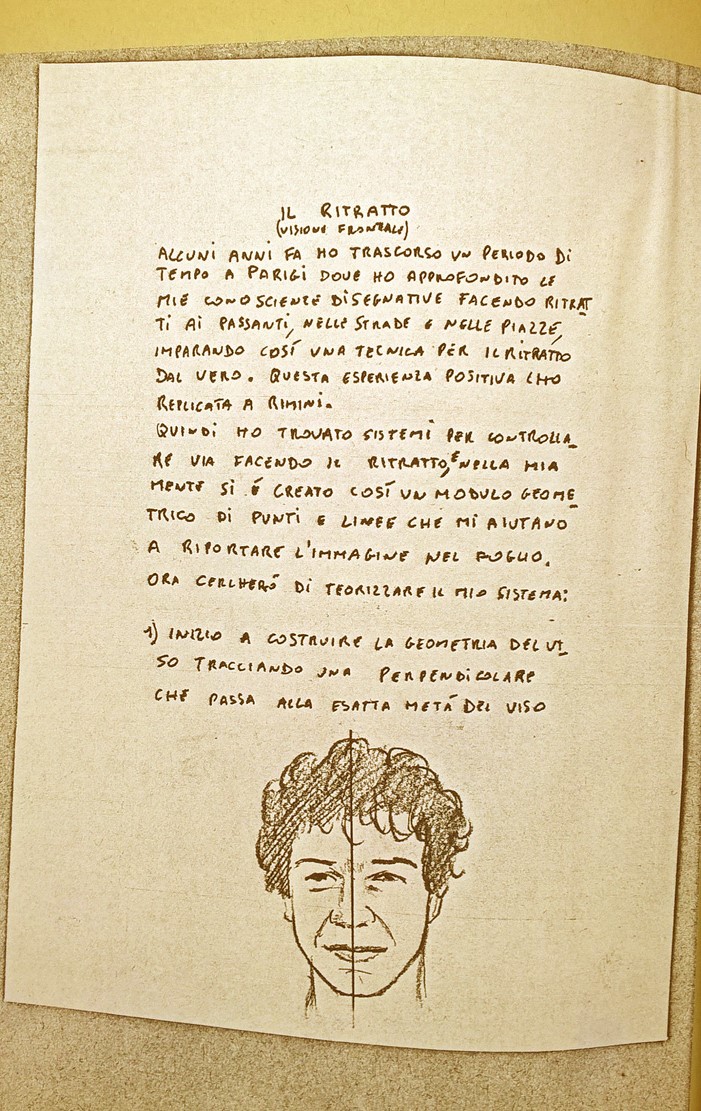 IL RITRATTO
(VISIONE FRONTALE)
ALCUNI ANNI FA HO TRASCORSO UN PERIODO DI
TEMPO A PARIGI DOVE HO APPROFONDITO LE
MIE CONOSCIENZE DISEGNATIVE FACENDO RITRAT
TI AI PASSANTI, NELLE STRADE E NELLE PIAZZE,
IMPARANDO COSÍ UNA TECNICA PER IL RITRATTO
DAL VERO. QUESTA ESPERIENZA POSITIVA L'HO
REPLICATA A RIMINI.
QUINDI HO TROVATO SISTEMI PER CONTROLLA_
RE VIA FACENDO IL RITRATTO, E NELLA MIA
MENTE SI É CREATO COSÍ UN MODULO GEOME_
TRICO DI PUNTI E LINEE CHE MI AIUTANO
A RIPORTARE L'IMMAGINE NEL FOGLIO.
ORA CERCHERÓ DI TEORIZZARE IL MIO SISTEMA:
1) INIZIO A COSTRUIRE LA GEOMETRIA DEL VI_
SO TRACCIANDO UNA PERPENDICOLARE
CHE PASSA ALLA ESATTA METÁ DEL VISO